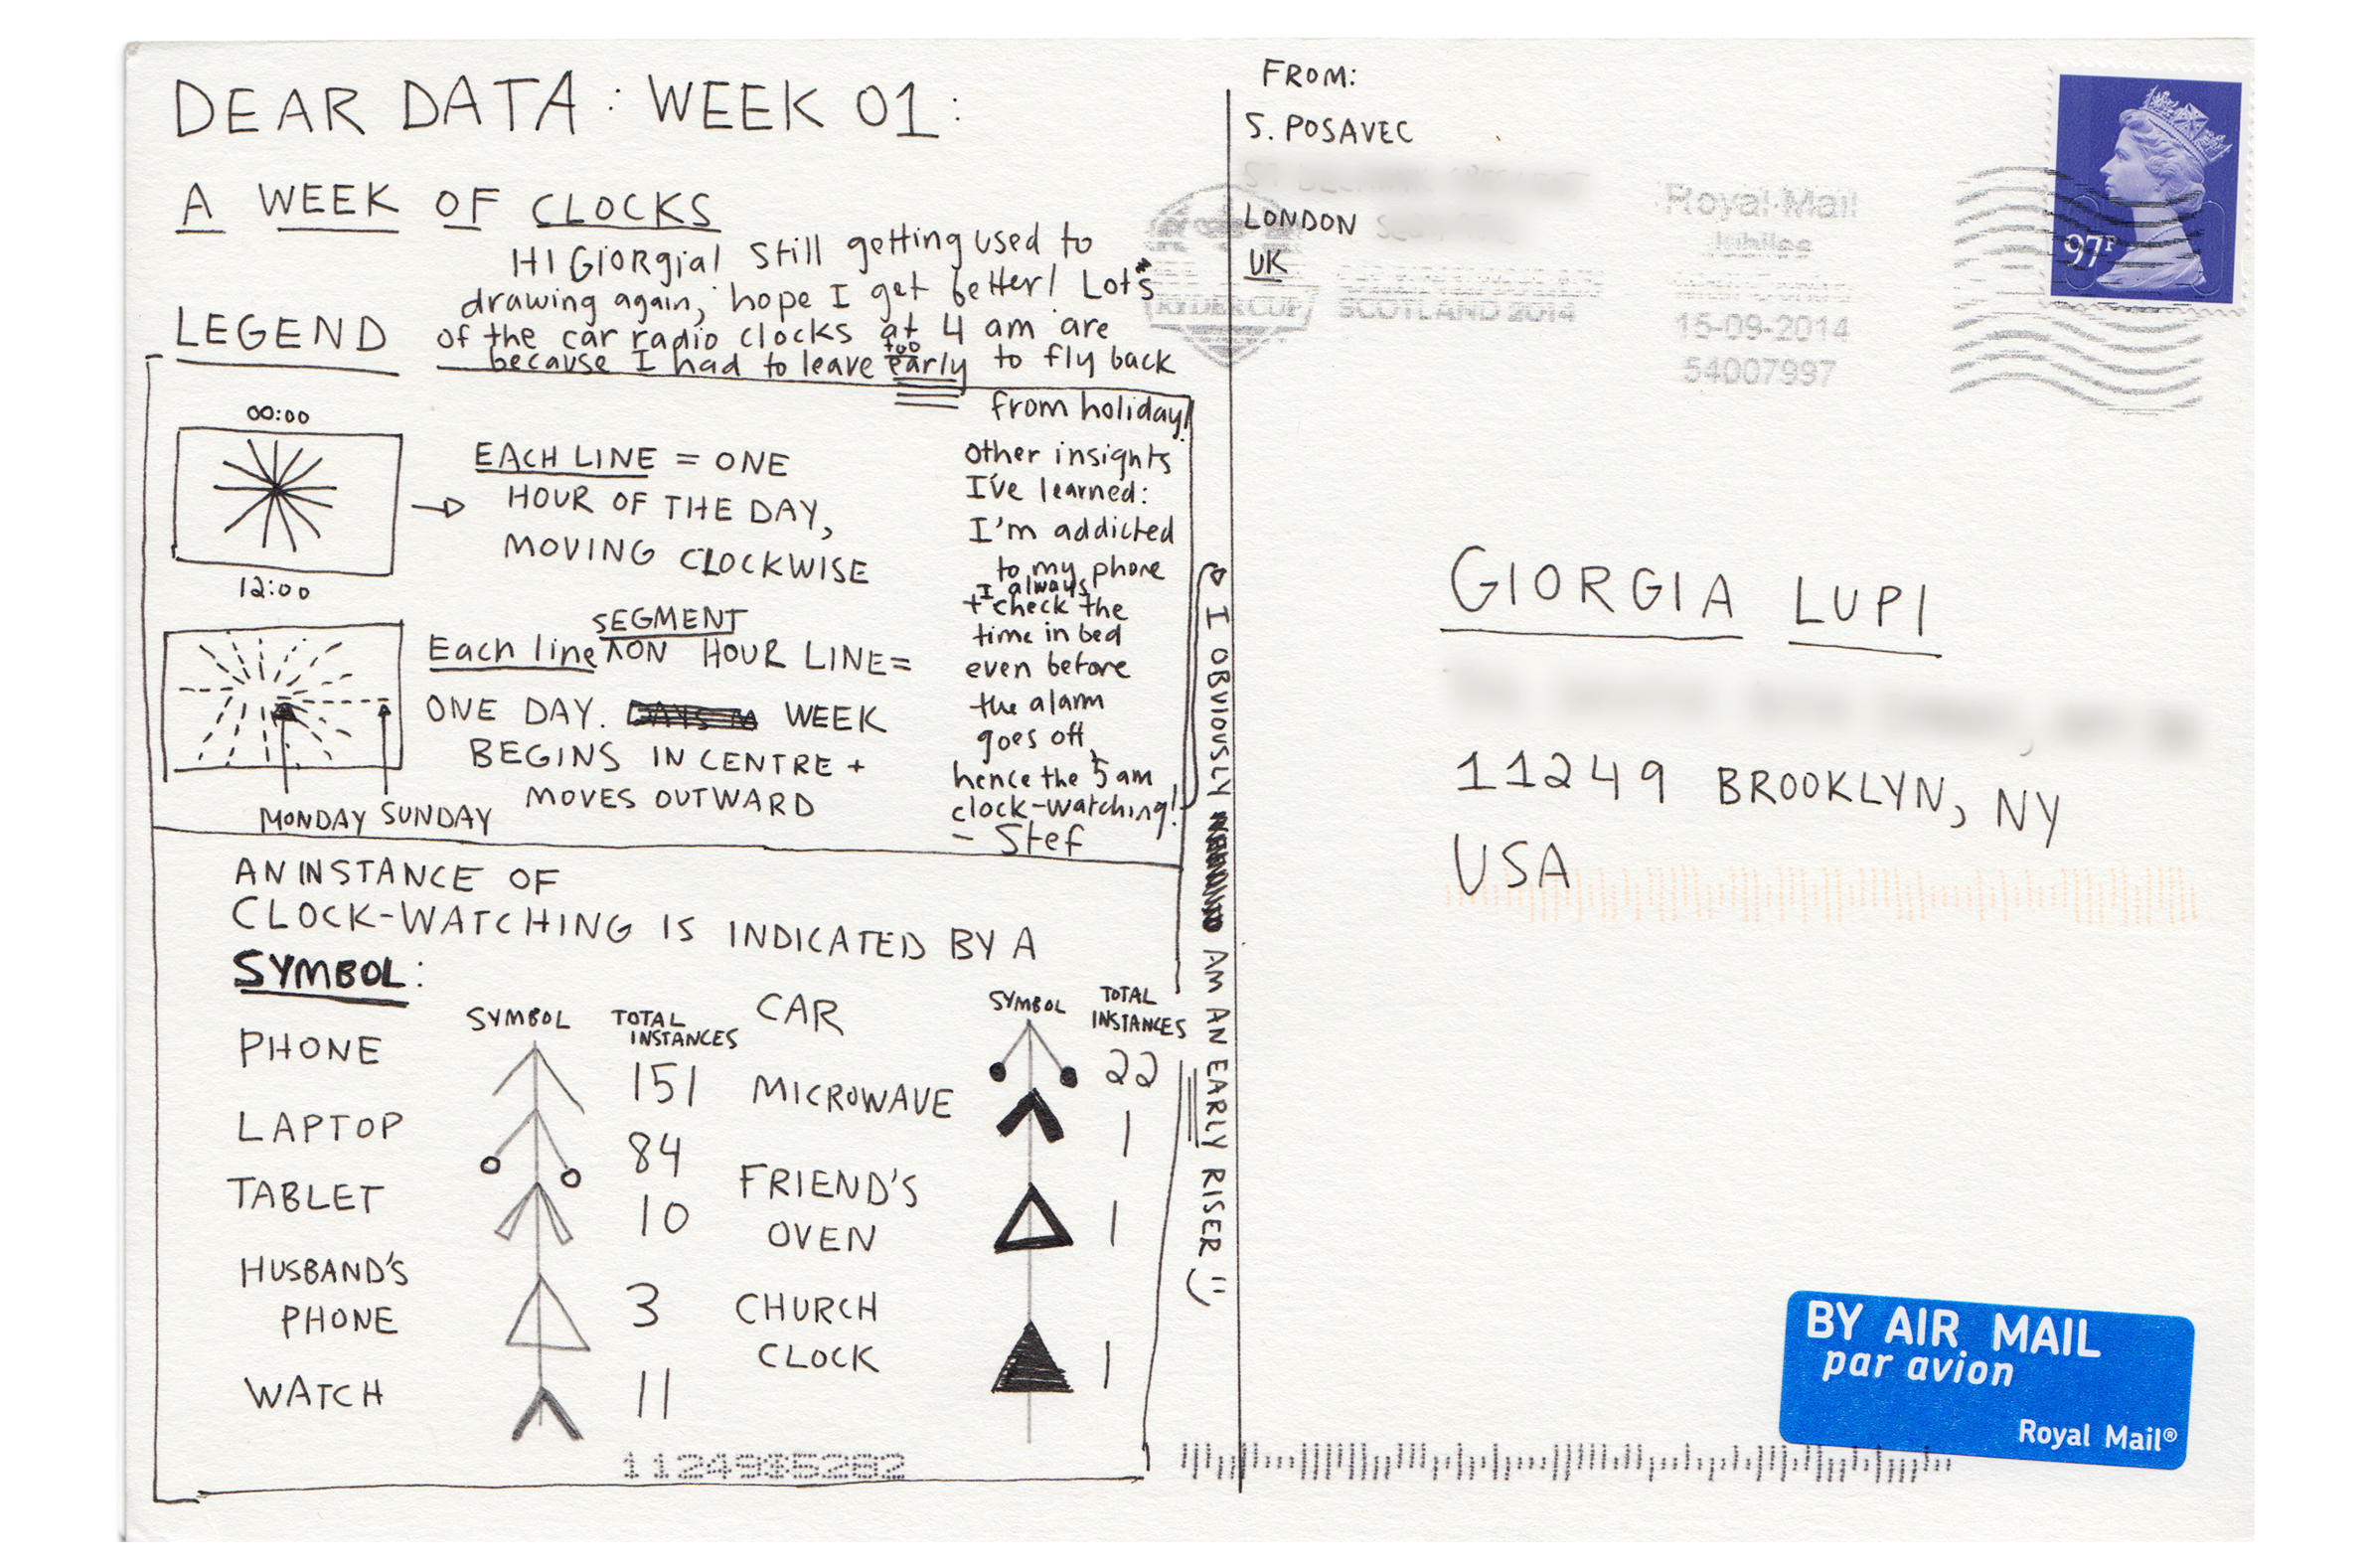 DEAR DATA: WEEK 01:
A WEEK OF CLOCKS
HI GIORgia! Still getting used to
drawing again, hope I get better! Lots
of the car radio clocks at 4 am are
because I had to leave too early to fly back
from holiday!
other insights
I've learned:
I'm addicted
to my phone
+ I always
check the
time in bed
even before
the alarm
goes off,
hence the 5 am
clock-watching!
- Stef
I OBVIOUSLY AM AN EARLY RISER
LEGEND
00:00
12:00
EACH LINE = ONE
HOUR OF THE DAY,
MOVING CLOCKWISE
SEGMENT
Each line ON HOUR LINE=
ONE DAY. WEEK
BEGINS IN CENTRE +
MOVES OUTWARD
MONDAY SUNDAY
AN INSTANCE OF
CLOCK-WATCHING IS INDICATED BY A
SYMBOL:
SYMBOL TOTAL INSTANCES
PHONE 151
LAPTOP 84
TABLET 10
HUSBAND'S
PHONE 3
WATCH 11
SYMBOL TOTAL INSTANCES
CAR 22
MICROWAVE 1
FRIEND'S
OVEN 1
CHURCH
CLOCK 1
FROM:
S. POSAVEC
LONDON
UK
RYDER CUP
SCOTLAND 2014
Royal Mail
Jubilee
Mail Centre
15-09-2014
54007997
97P
GIORGIA LUPI
11249 BROOKLYN, NY
USA
BY AIR MAIL
par avion
Royal Mail®